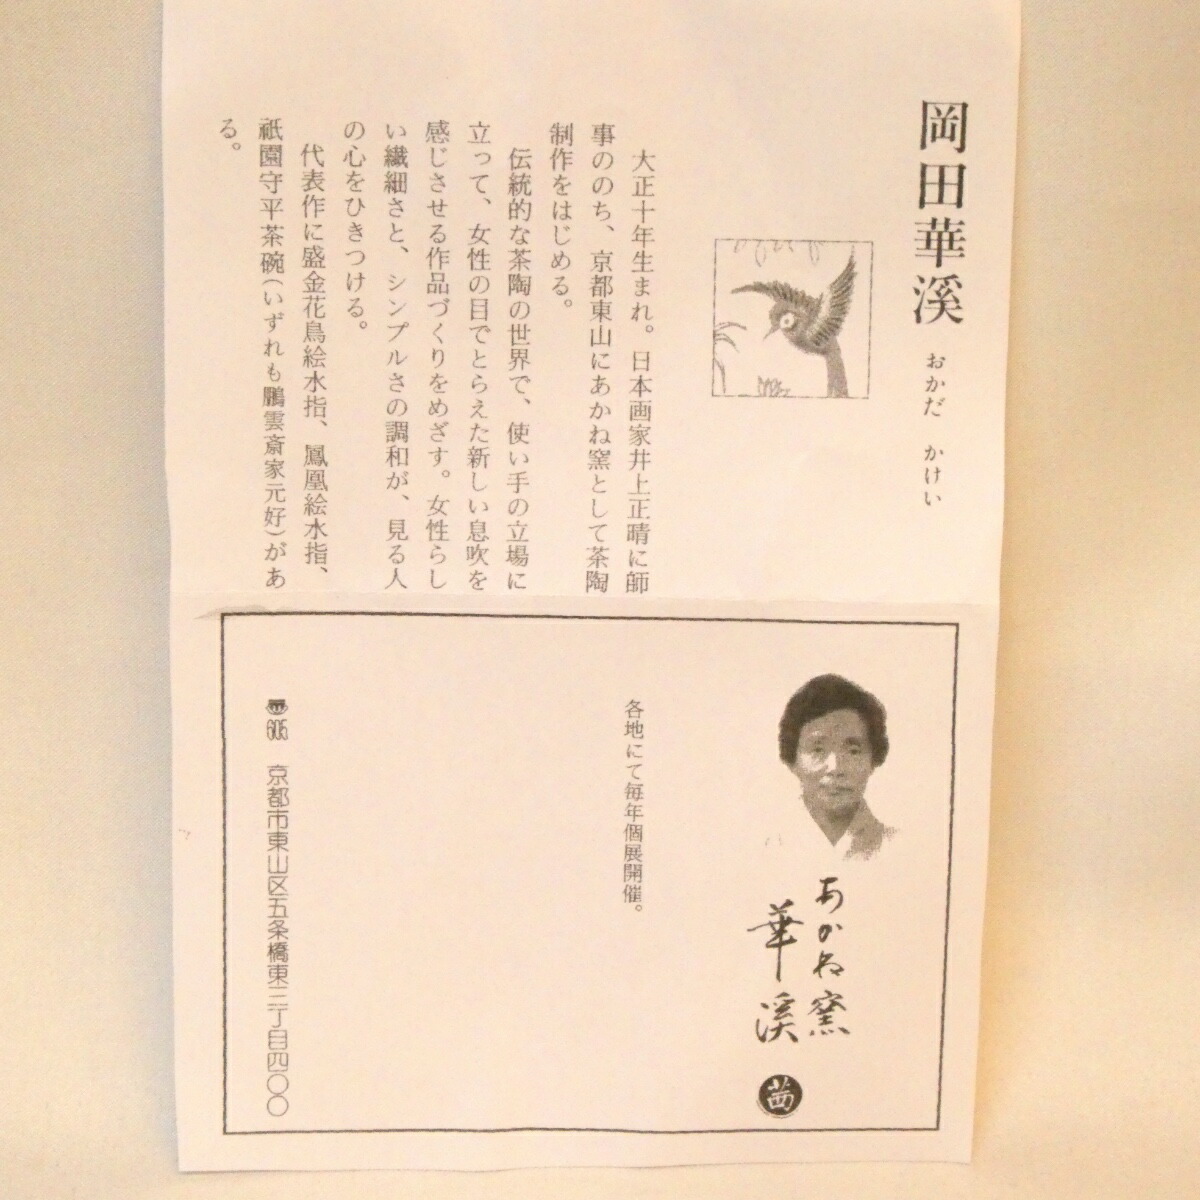 岡田華溪 おかだ かけい
大正十年生まれ。日本画家井上正晴に師
事ののち、京都東山にあかね窯として茶陶
制作をはじめる。
伝統的な茶陶の世界で、使い手の立場に
立って、女性の目でとらえた新しい息吹を
感じさせる作品づくりをめざす。女性らし
い繊細さと、シンプルさの調和が、見る人
の心をひきつける。
代表作に盛金花鳥絵水指、鳳凰絵水指、
祇園守平茶碗(いずれも鵬雲斎家元好)があ
る。
あかね窯
華溪
茜
各地にて毎年個展開催。
〠605 京都市東山区五条橋東三丁目四〇〇